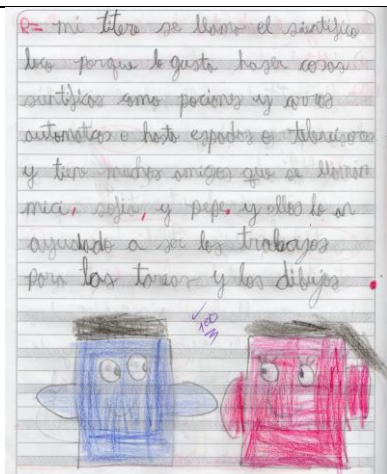 R= mi títere se llama el sientífico
loco porque le gusta haser cosas
sientíficas como pociones y carros
automaticos o hasta espadas o televisores
y tiene muchos amigos que se llaman
mici, sofia, y pepe, y ellos lo an
ayudado a ser los trabajos
para las tareas y los dibujos
100